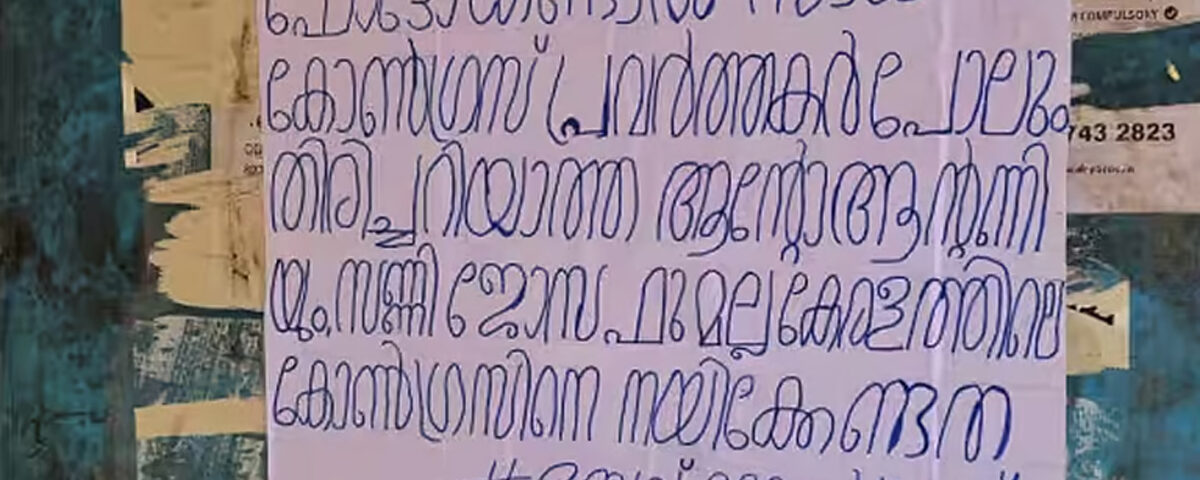 COMPULSORY
കോൺഗ്രസ് പ്രവർത്തകർ പോലും
743 2823
തിരിച്ചറിയാത്ത ആന്റോ ആന്റണി
യും സണ്ണി ജോസഫുമല്ല കേരളത്തിലെ
കോൺഗ്രസിനെ നയിക്കേണ്ടത്